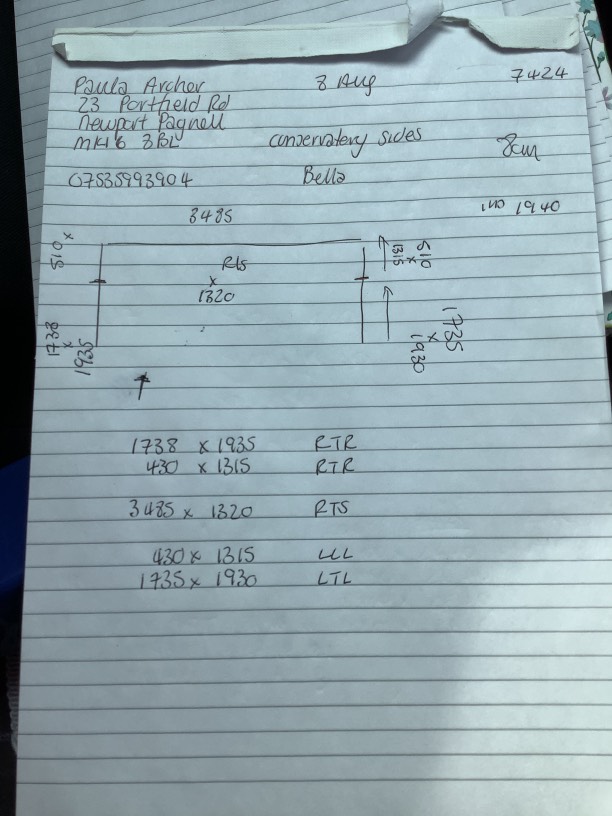 Paula Archer 8 Aug 7424
23 Portfield Rd
Newport Pagnell
MK16 8BL conservatory sides 8cm
07535993904 Bella
3485 1940
510 x
RTS
x
1320
510
x
1315
1738
x
1935
1735
x
1930
1738 x 1935 RTR
430 x 1315 RTR
3485 x 1320 RTS
430 x 1315 LLL
1735 x 1930 LTL